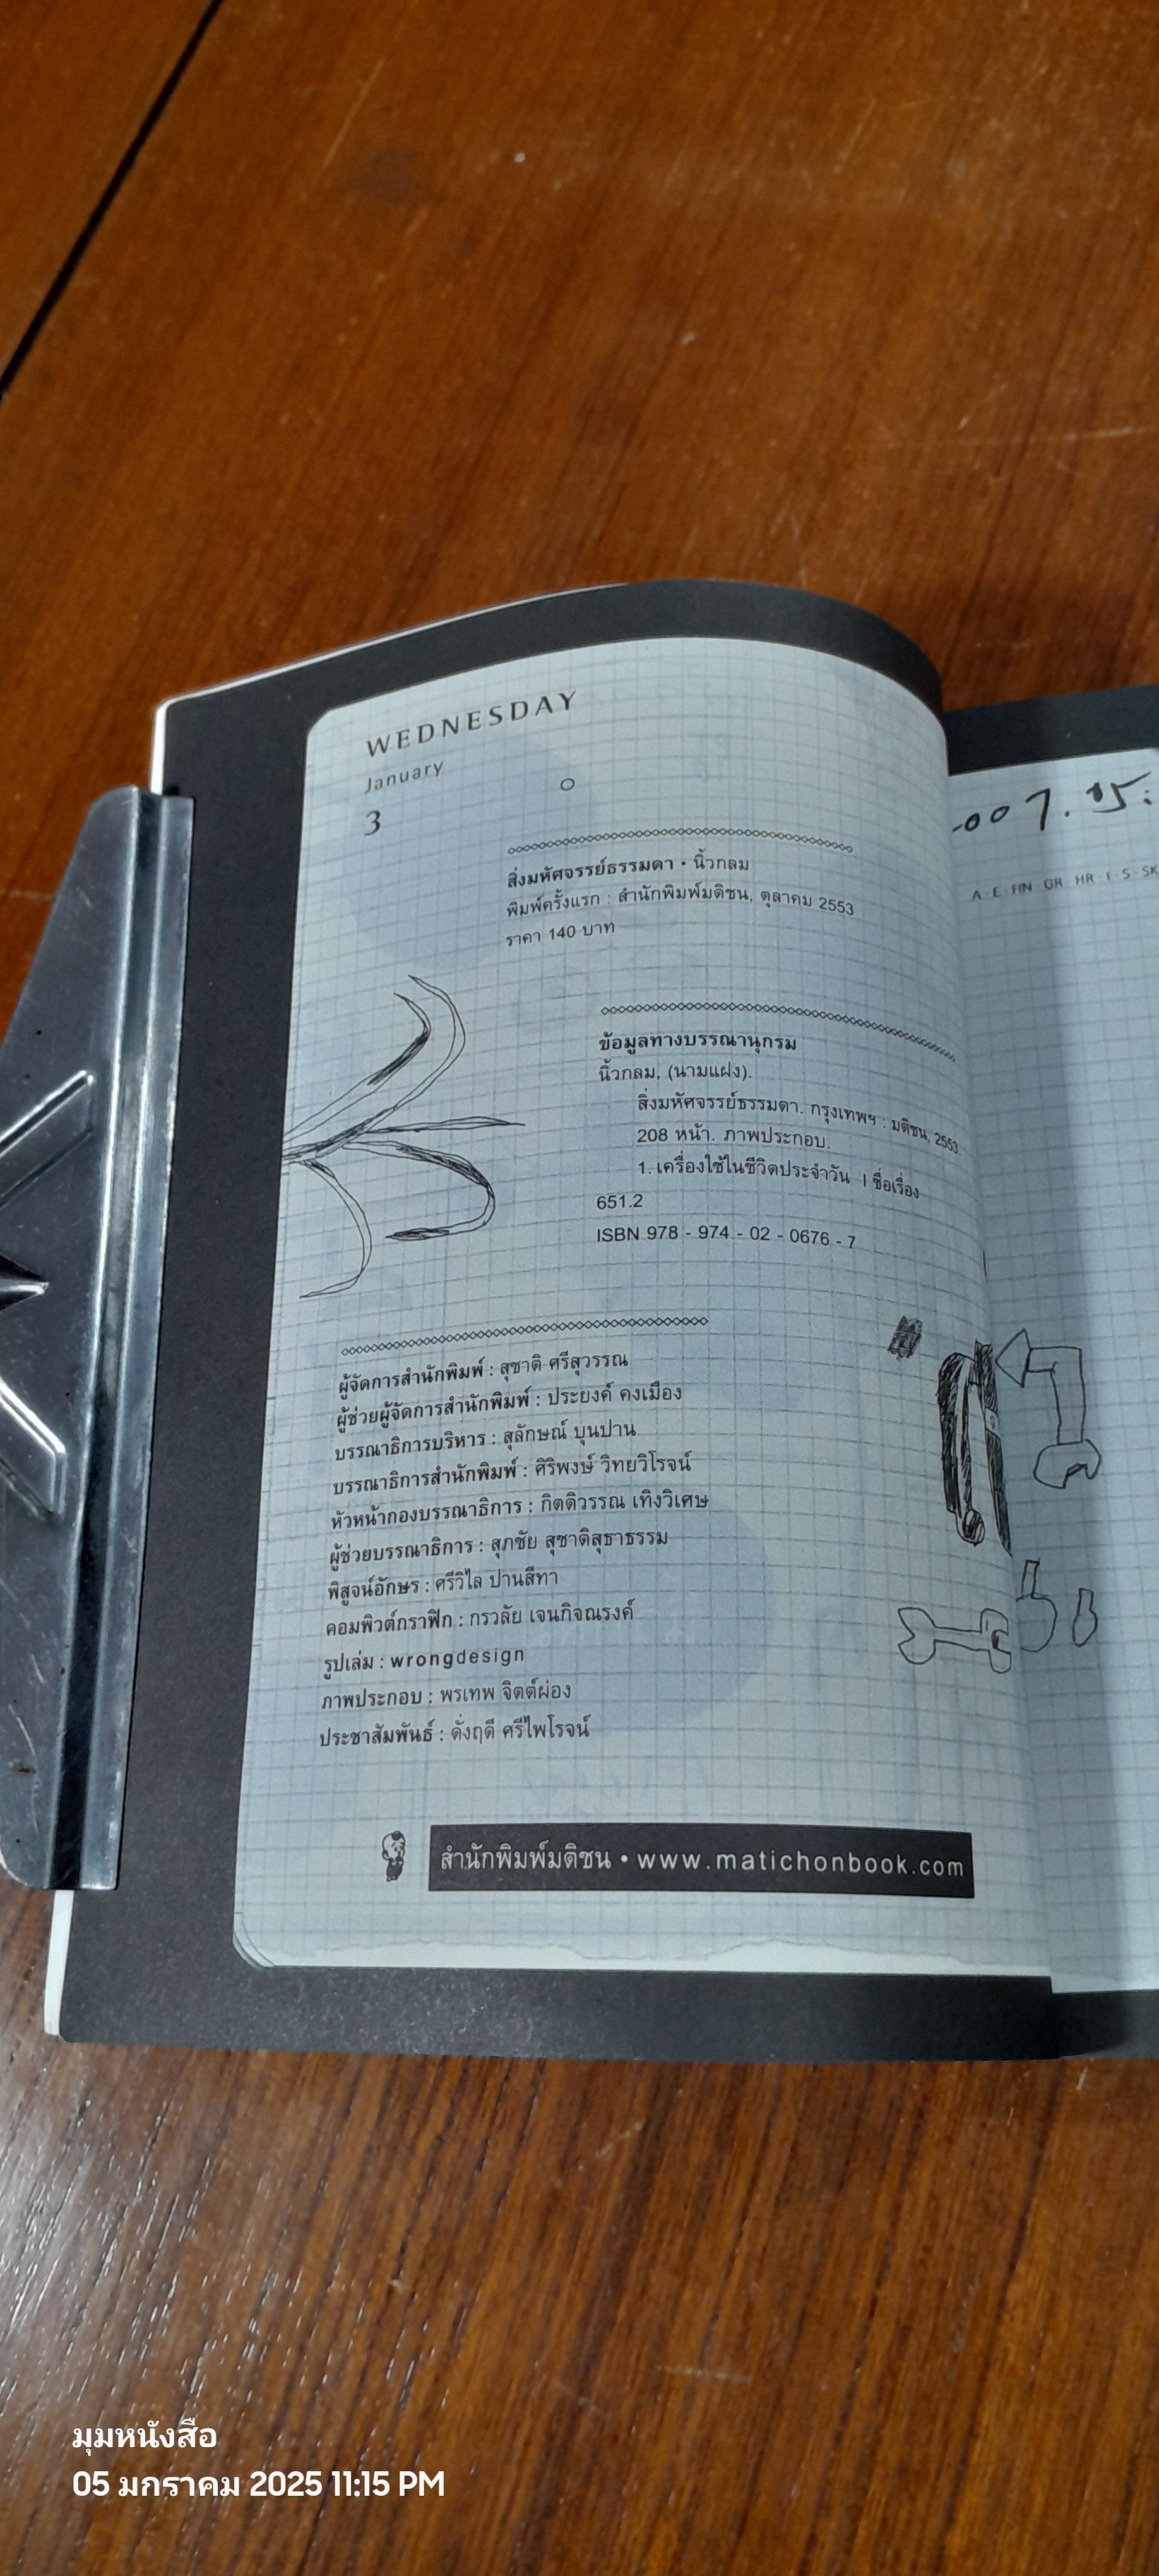 WEDNESDAY
January
3
สิ่งมหัศจรรย์ธรรมดา • นิ้วกลม
พิมพ์ครั้งแรก : สำนักพิมพ์มติชน, ตุลาคม 2553
ราคา 140 บาท
ข้อมูลทางบรรณานุกรม
นิ้วกลม, (นามแฝง).
สิ่งมหัศจรรย์ธรรมดา. กรุงเทพฯ : มติชน, 2553
208 หน้า. ภาพประกอบ.
1. เครื่องใช้ในชีวิตประจำวัน I ชื่อเรื่อง
651.2
ISBN 978 - 974 - 02 - 0676 - 7
ผู้จัดการสำนักพิมพ์ : สุชาติ ศรีสุวรรณ
ผู้ช่วยผู้จัดการสำนักพิมพ์ : ประยงค์ คงเมือง
บรรณาธิการบริหาร : สุลักษณ์ บุนปาน
บรรณาธิการสำนักพิมพ์ : ศิริพงษ์ วิทยวิโรจน์
หัวหน้ากองบรรณาธิการ : กิตติวรรณ เทิงวิเศษ
ผู้ช่วยบรรณาธิการ : สุภชัย สุชาติสุธาธรรม
พิสูจน์อักษร : ศรีวิไล ปานสีทา
คอมพิวต์กราฟิก : กรวลัย เจนกิจณรงค์
รูปเล่ม : wrongdesign
ภาพประกอบ : พรเทพ จิตต์ผ่อง
ประชาสัมพันธ์ : ดั่งฤดี ศรีไพโรจน์
สำนักพิมพ์มติชน • www.matichonbook.com
A · E · FIN · GR · HR · I · S · SK
มุมหนังสือ
05 มกราคม 2025 11:15 PM